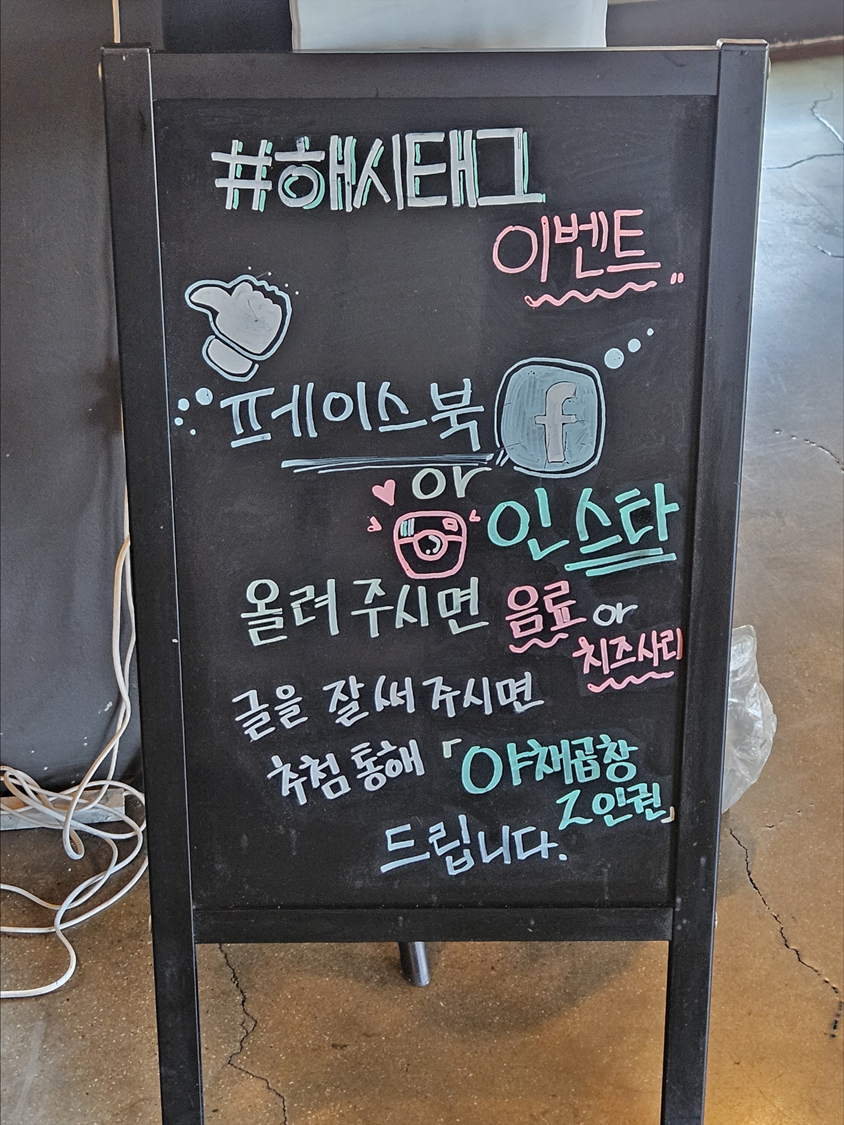 #해시태그
이벤트"
페이스북 f
or
인스타
올려주시면 음료 or
치즈사리
글을 잘 써주시면
추첨 통해 「야채곱창
2인권」
드립니다.